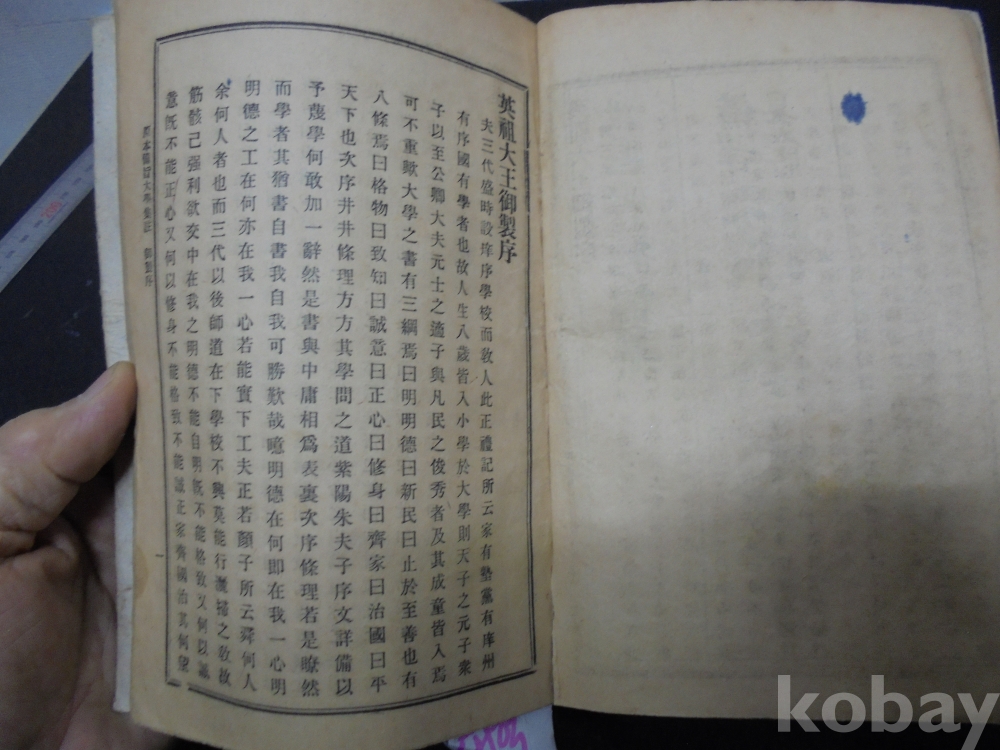 英祖大王御製序
夫三代盛時設庠序學校而敎人此正禮記所云家有塾黨有庠州
有序國有學者也故人生八歲皆入小學於大學則天子之元子衆
子以至公卿大夫元士之適子與凡民之俊秀者及其成童皆入焉
可不重歟大學之書有三綱焉曰明明德曰新民曰止於至善也有
八條焉曰格物曰致知曰誠意曰正心曰修身曰齊家曰治國曰平
天下也次序井井條理方方其學問之道紫陽朱夫子序文詳備以
予蔑學何敢加一辭然是書與中庸相爲表裏次序條理若是瞭然
而學者其猶書自書我自我可勝歎哉噫明德在何即在我一心明
明德之工在何亦在我一心若能實下工夫正若顏子所云舜何人
余何人者也而三代以後師道在下學校不興莫能行灑掃之敎故
筋骸已强利欲交中在我之明德不能自明旣不能格致又何以誠
意旣不能正心又何以修身不能格致不能誠正家齊國治其何望
原本備旨大學集註 御製序
一
kobay